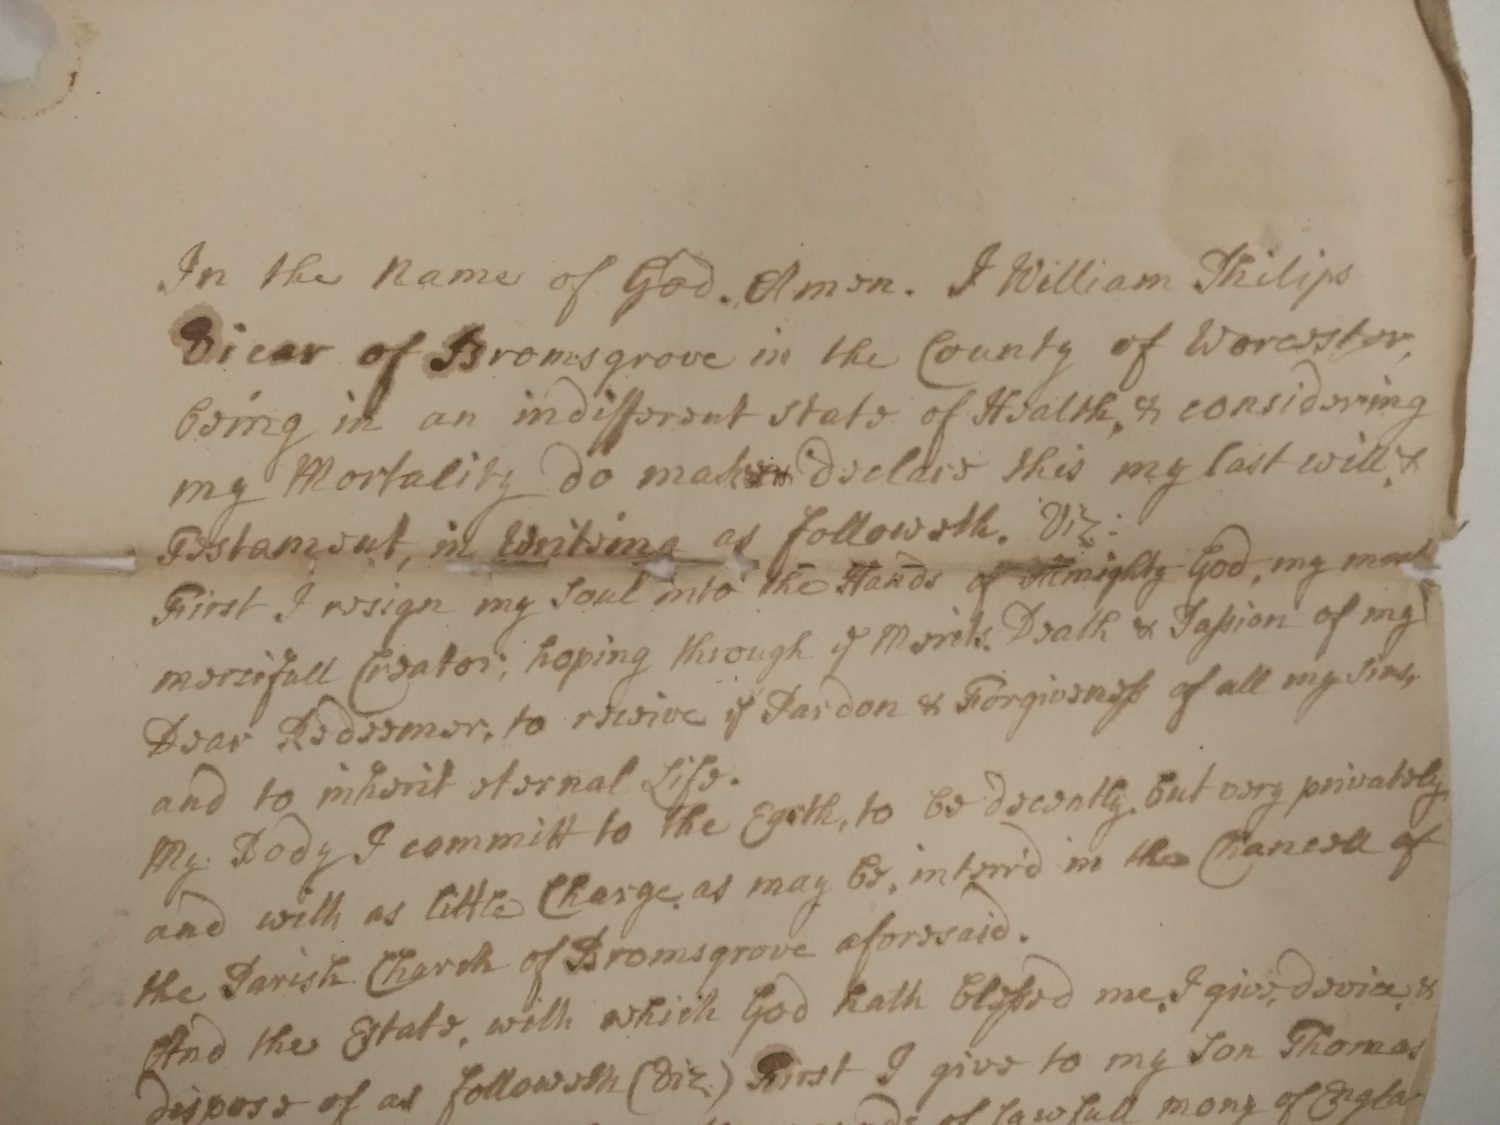 In the Name of God. Amen. I William Philips
Vicar of Bromsgrove in the County of Worcester,
being in an indifferent state of Health, & considering
my Mortality do make & declare this my last will &
Testament, in Writeing as followeth. Viz:
First I resign my Soul into the Hands of Almighty God, my most
mercifull Creator; hoping through ye Merits. Death & Passion of my
Dear Redeemer, to receive ye Pardon & Forgiveness of all my Sins,
and to inherit eternal Life.
My Body I committ to the Earth, to be decently but very privately
and with as little Charge as may be, interr'd in the Chancell of
the Parish Church of Bromsgrove aforesaid.
And the Estate, with which God hath blessed me, I give, device &
dispose of as followeth (Viz) First I give to my Son Thomas
of lawfull mony of Engla